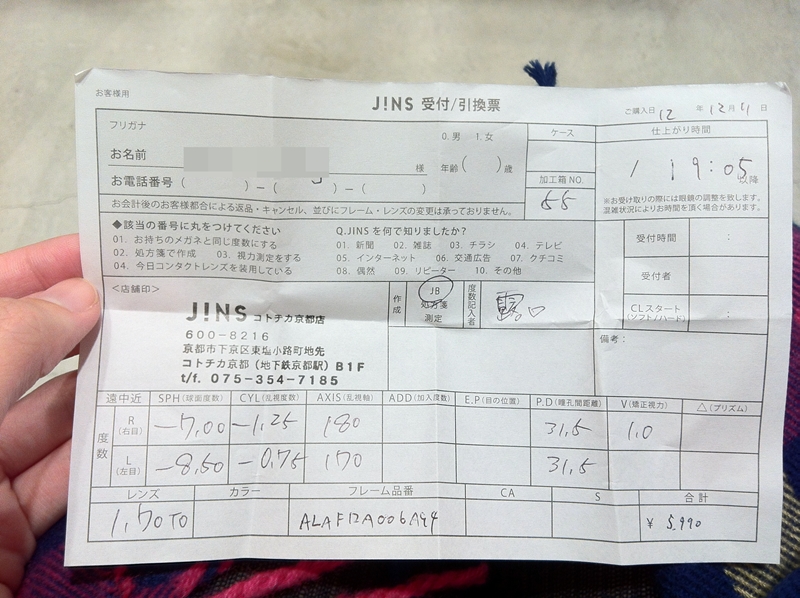 お客様用
J!NS 受付/引換票
ご購入日 12 年 12月 11 日
フリガナ
お名前 様
0. 男 1. 女
年齢( )歳
お電話番号 ( ) − ( ) − ( )
お会計後のお客様都合による返品・キャンセル、並びにフレーム・レンズの変更は承っておりません。
ケース
加工箱 NO.
55
仕上がり時間
19:05 以降
※お受け取りの際には眼鏡の調整を致します。
混雑状況によりお時間を頂く場合があります。
◆該当の番号に丸をつけてください
01. お持ちのメガネと同じ度数にする
02. 処方箋で作成 03. 視力測定をする
04. 今日コンタクトレンズを装用している
Q.JINSを何で知りましたか?
01. 新聞 02. 雑誌 03. チラシ 04. テレビ
05. インターネット 06. 交通広告 07. クチコミ
08. 偶然 09. リピーター 10. その他
受付時間 :
受付者
CLスタート :
(ソフト/ハード)
備考:
<店舗印>
J!NS コトチカ京都店
600-8216
京都市下京区東塩小路町地先
コトチカ京都(地下鉄京都駅)B1F
t/f. 075-354-7185
作成
JB
処方箋
測定
度数記入者
遠中近 SPH(球面度数) CYL(乱視度数) AXIS(乱視軸) ADD(加入度数) E.P(目の位置) P.D(瞳孔間距離) V(矯正視力) △(プリズム)
度数
R (右目) -7.00 -1.25 180 31.5 1.0
L (左目) -8.50 -0.75 170 31.5
レンズ カラー フレーム品番 CA S 合計
1.70TO ALAF12A006A94 ¥ 5,990